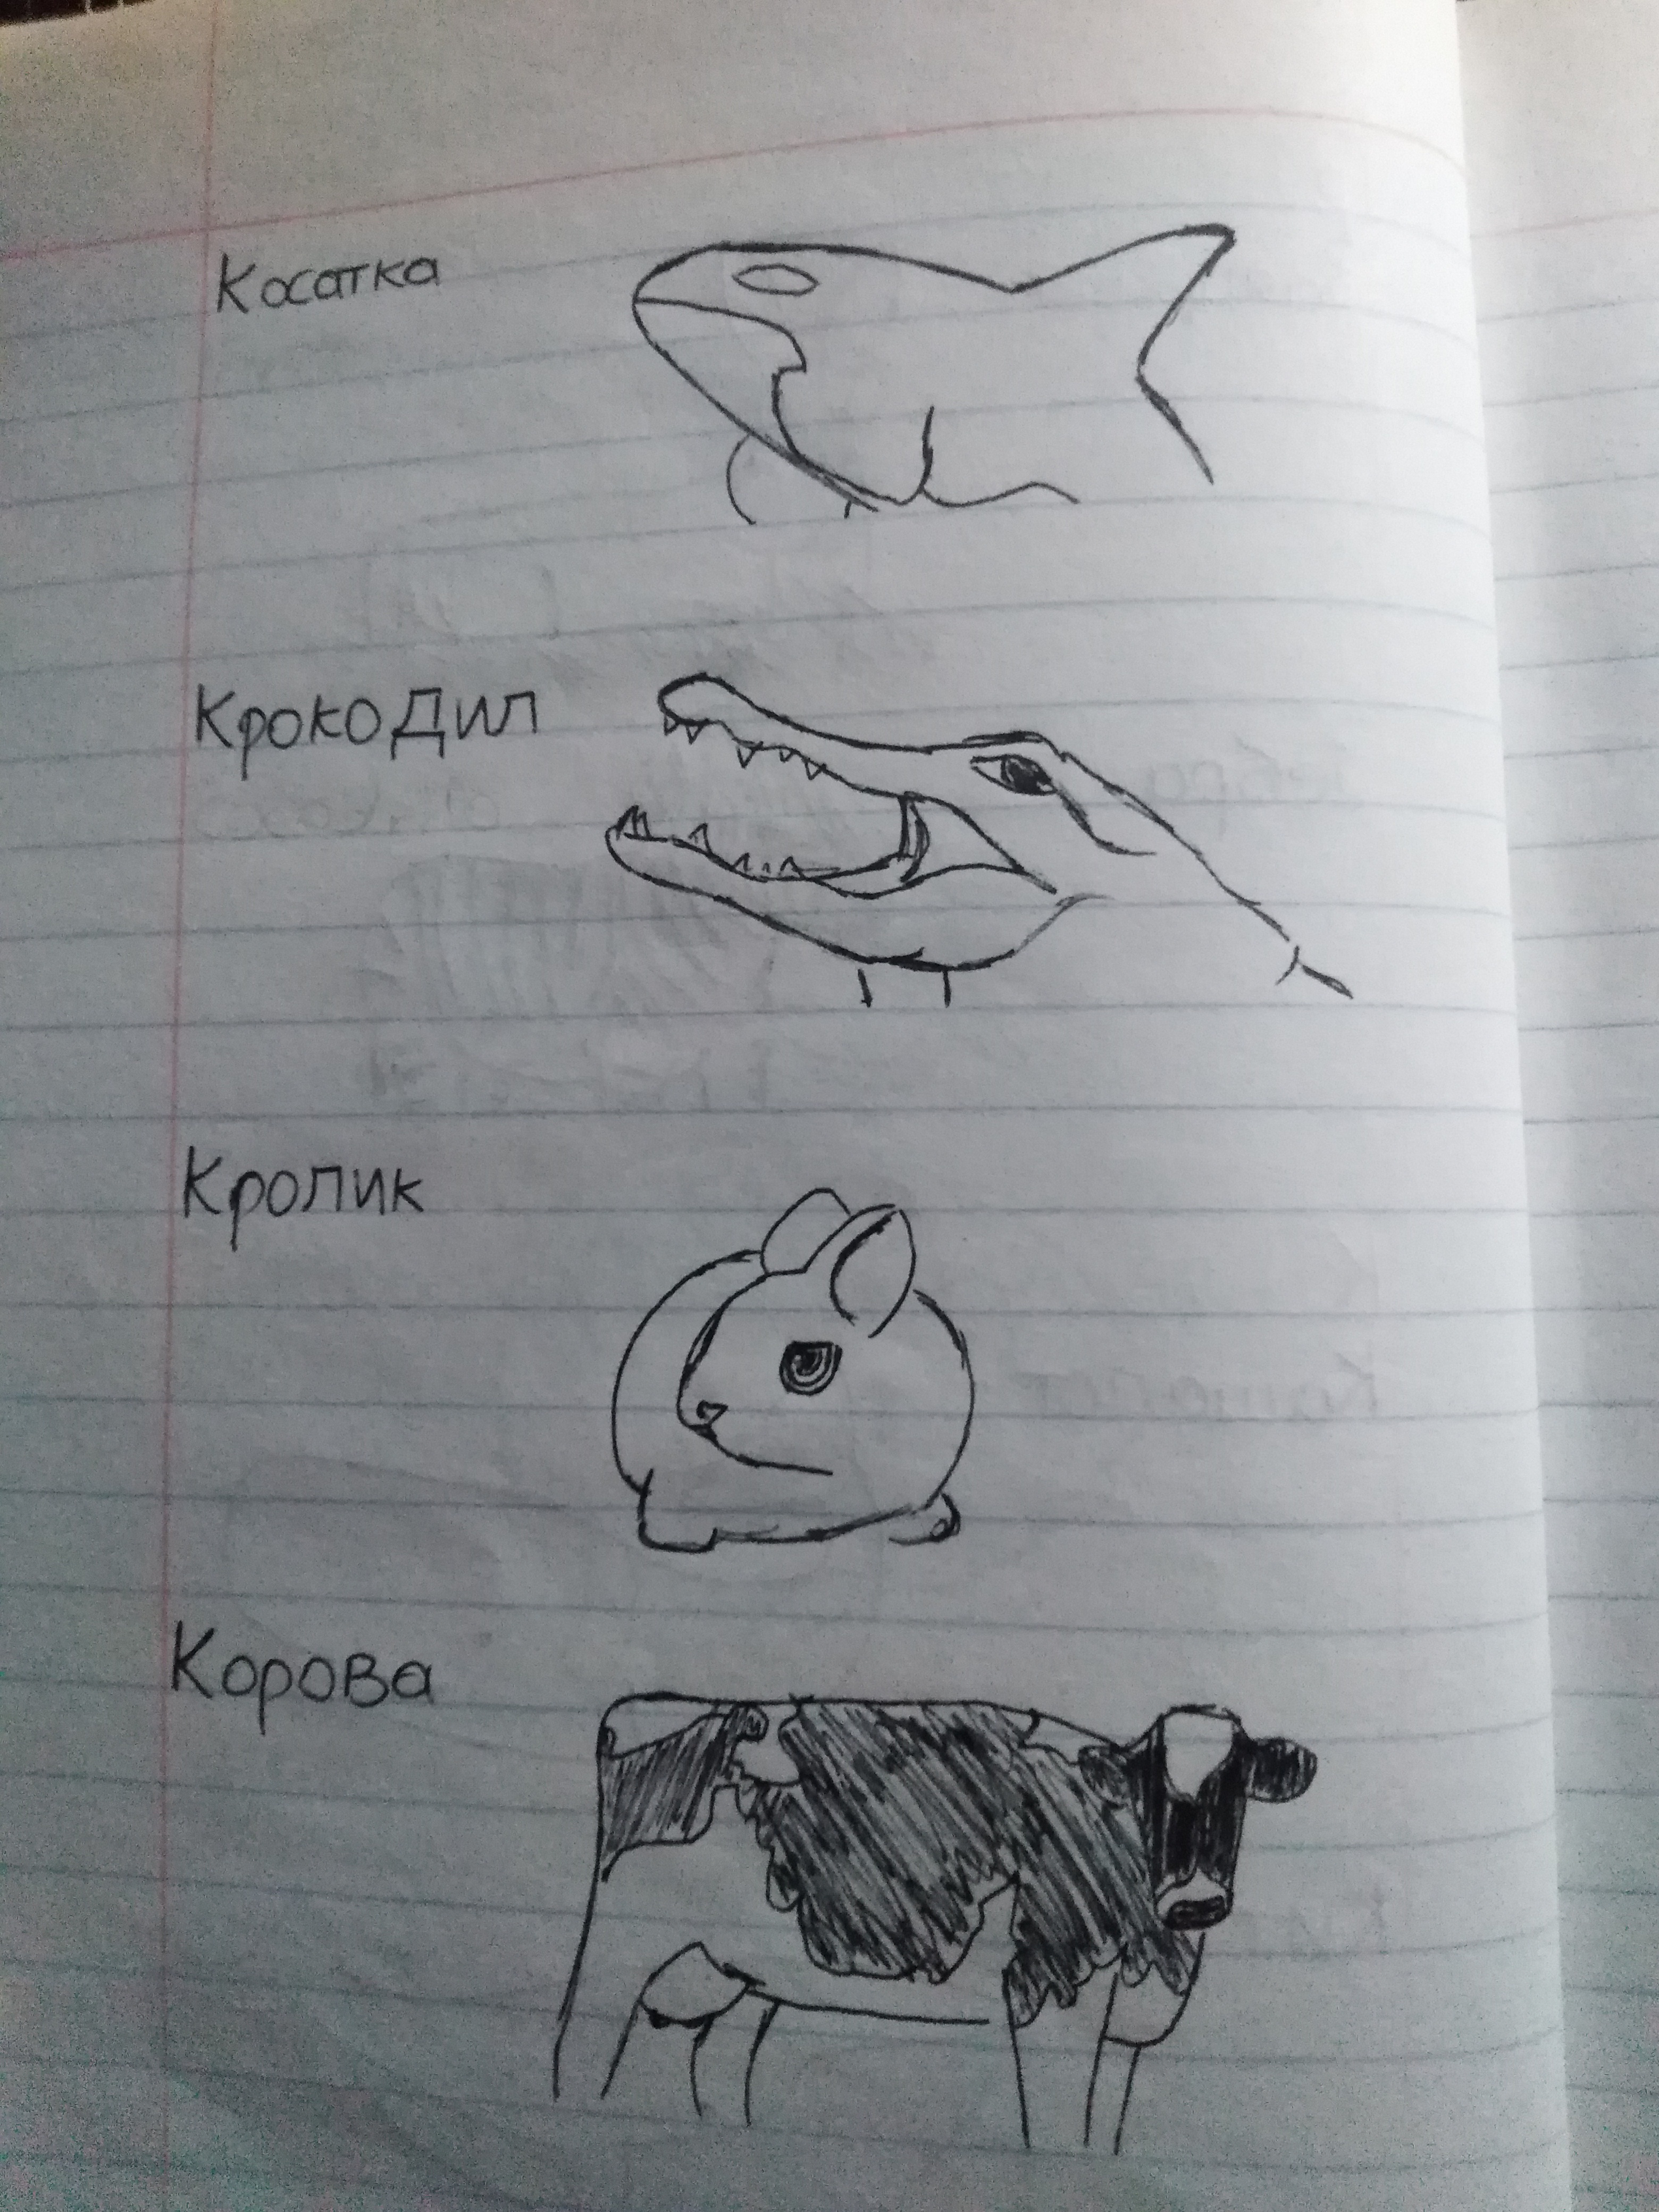 Косатка
Крокодил
Кролик
Корова